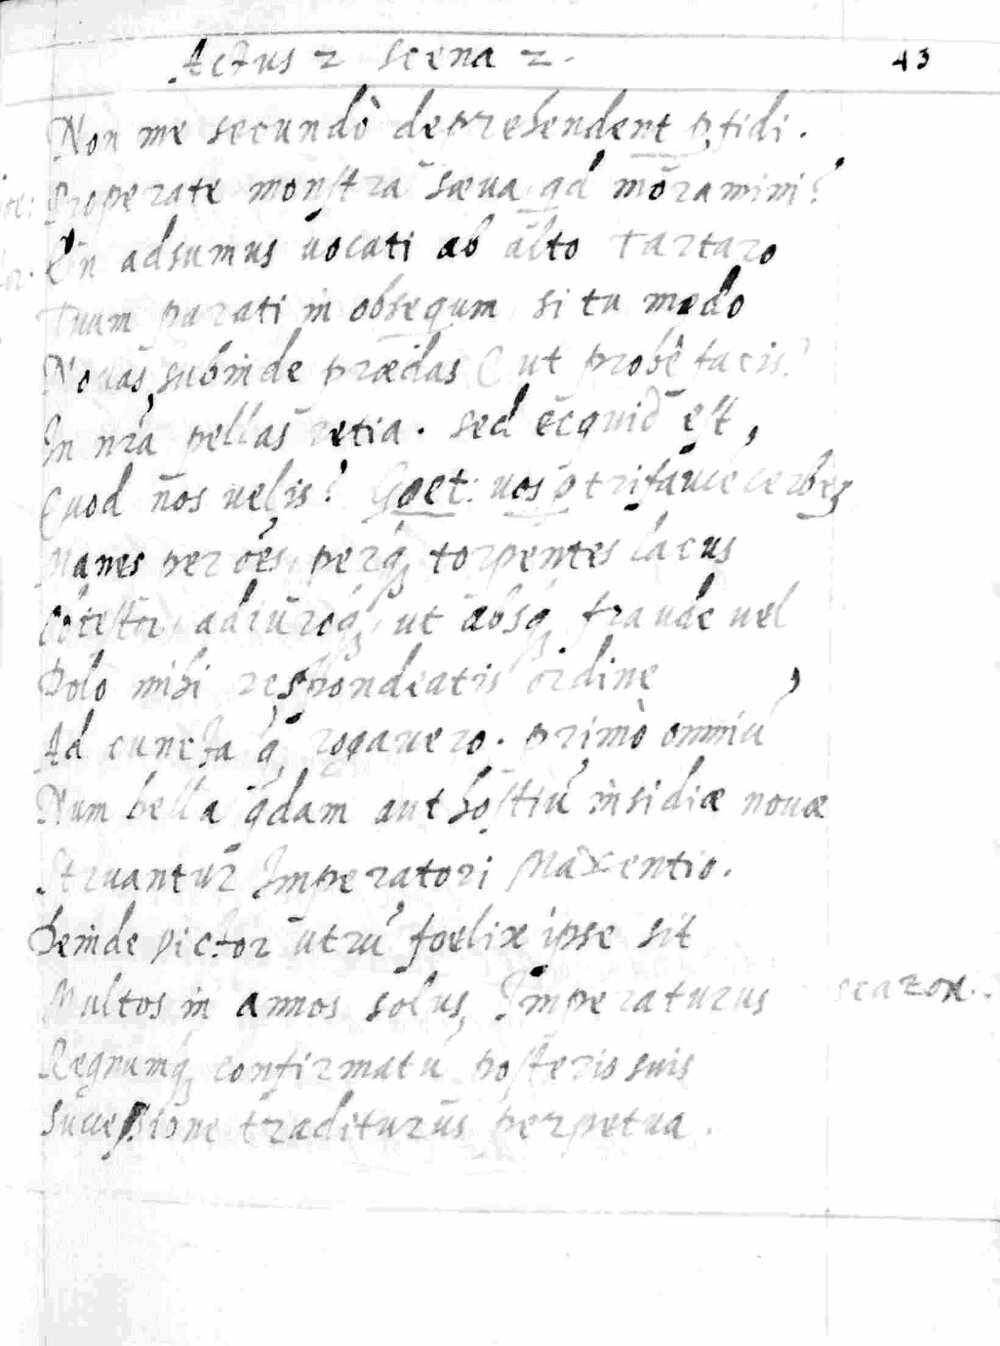 Actus 2 Scena 2. 43
Non me secundò deprehendent ꝑfidi.
Properate monstra sæua qd mōramini?
En adsumus uocati ab alto Tartaro
Tuam parati in obsequm si tu modo
Nouas subinde prædas (ut probè facis)
In nrā pellas retia. sed ecquid est,
Quod nos uelis? Goet: uos ꝑ trifauce cerberū
Manes per oēs, perqꝫ torpentes lacus
Obtestor, adiuroqꝫ, ut absqꝫ fraude uel
Dolo mihi respondeatis ordine,
Ad cuncta q̨ rogauero. primò omniū
Num bella qdam aut hostiū insidiæ nouæ
Struantur Imperatori Maxentio.
Deinde uictor utrū foelix ipse sit
Multos in annos solus, Imperaturus scazon.
Regnumqꝫ confirmatū posteris suis
Successione traditurus perpetua.